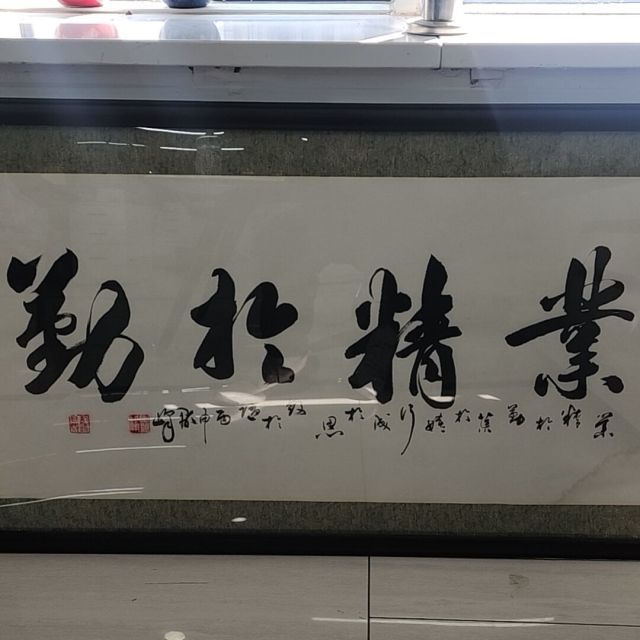 業精於勤
業精於勤荒於嬉行成於思